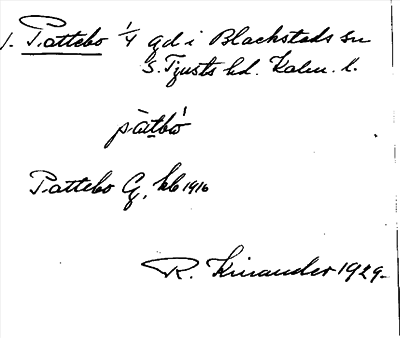 1. Pattebo 1/4 gd i Blackstads sn
S. Tjusts hd. Kalm. l.
pàt̠bó
Pattebo G, kb 1916
R. Kinander 1929-